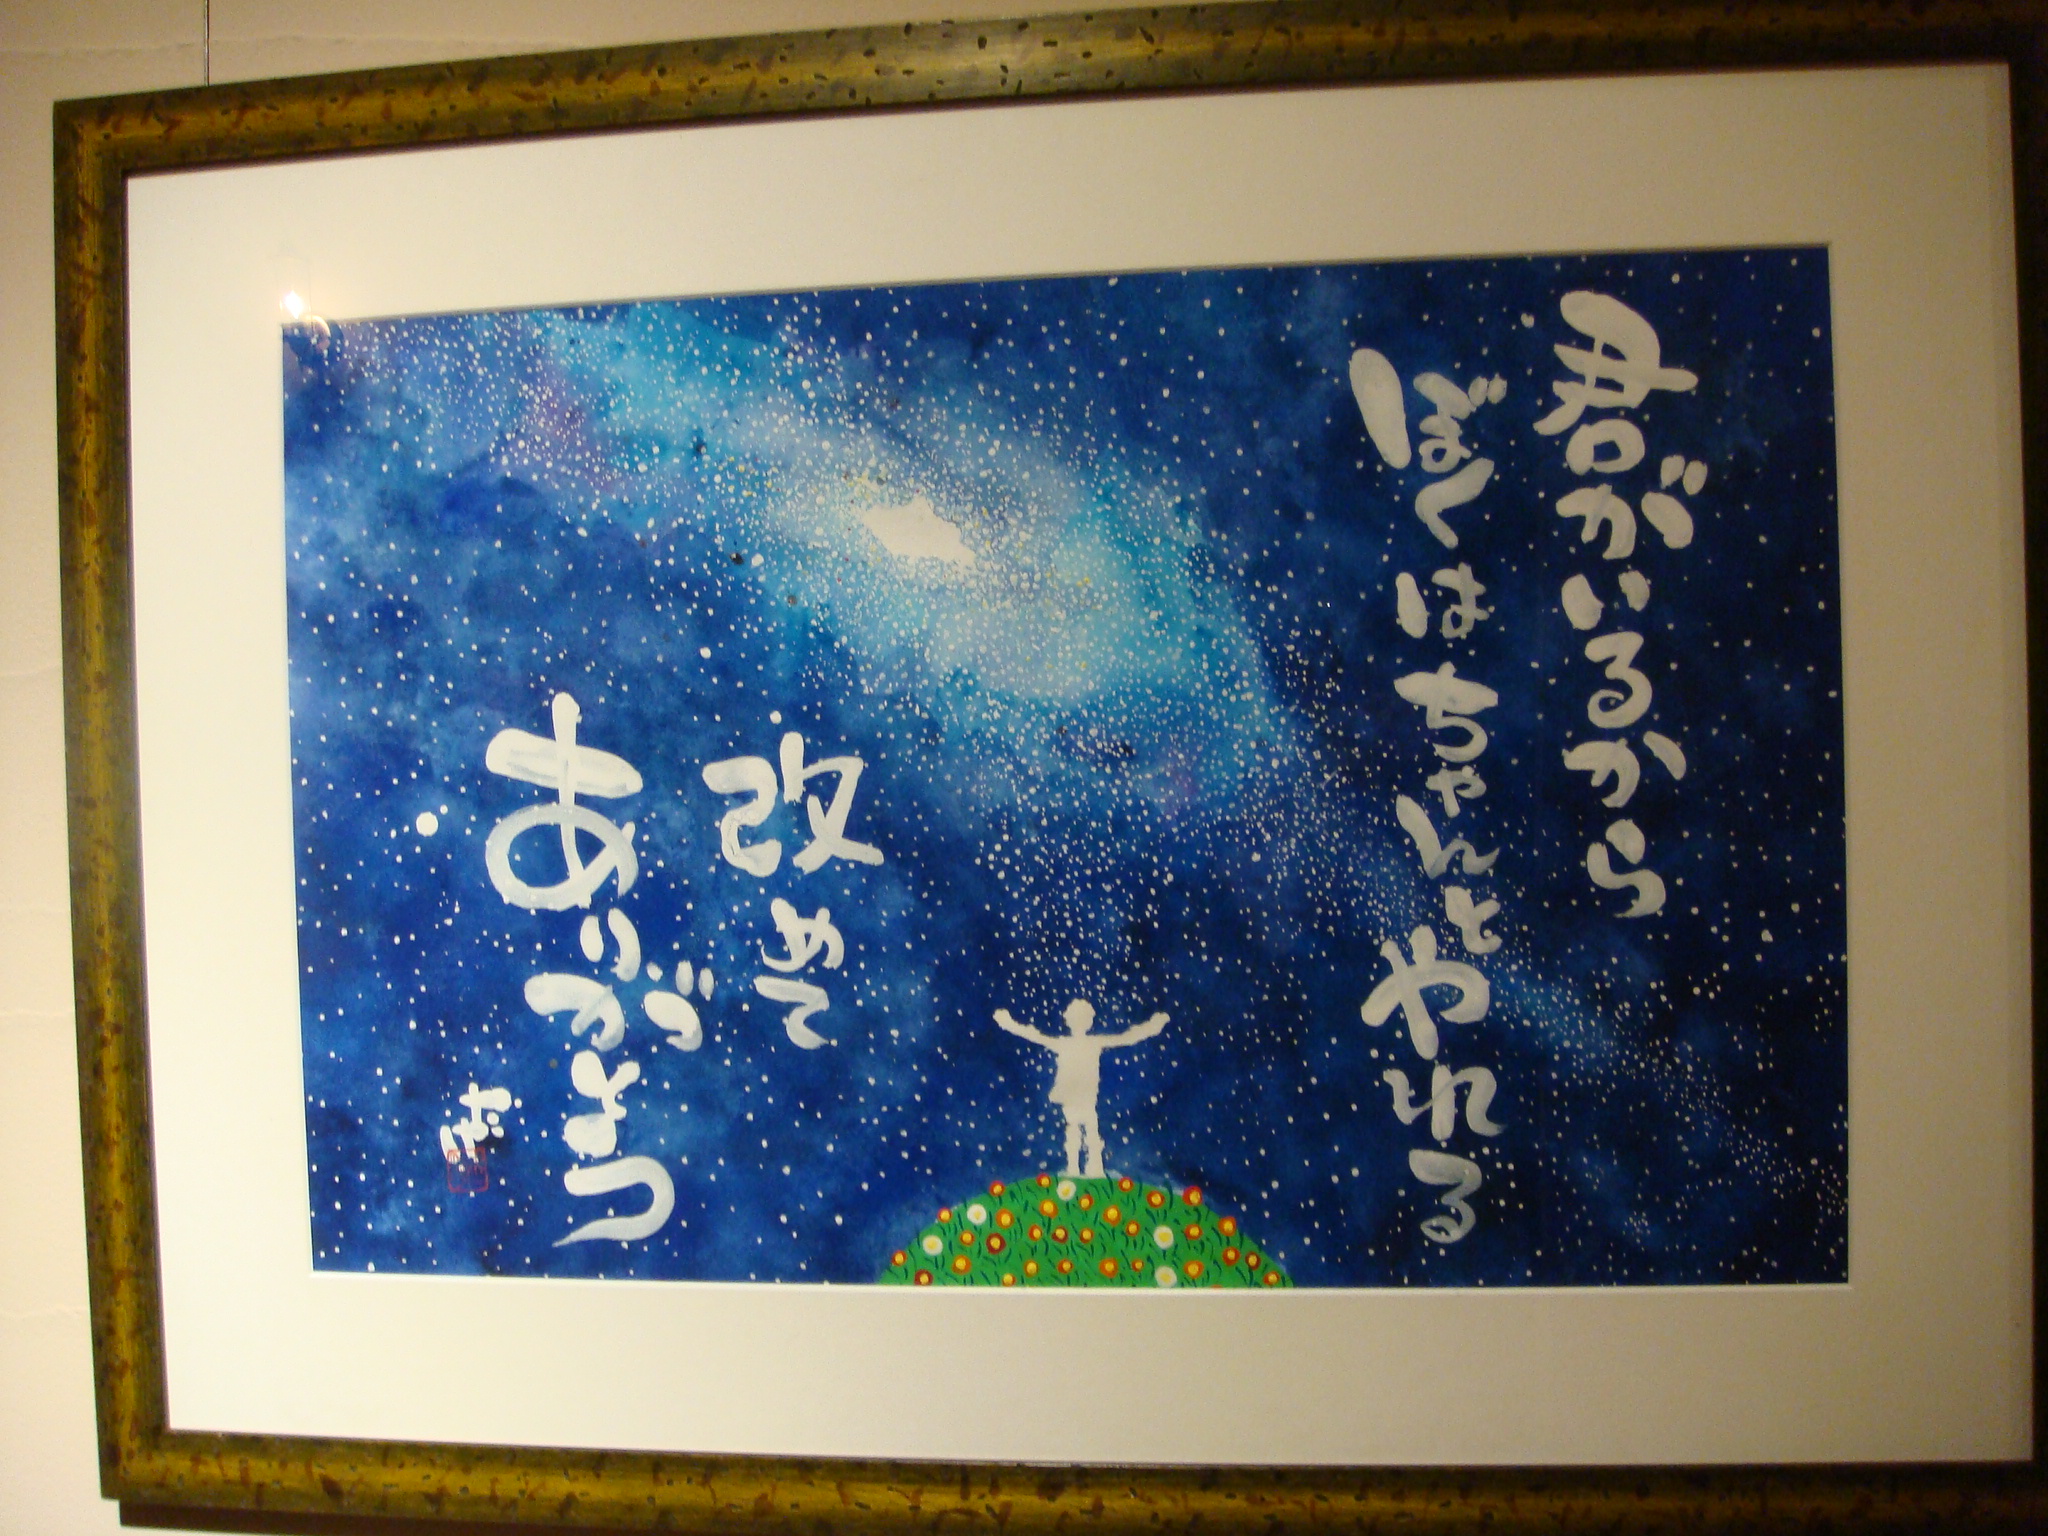 君がいるから
ぼくはちゃんとやれる
改めて
ありがとう